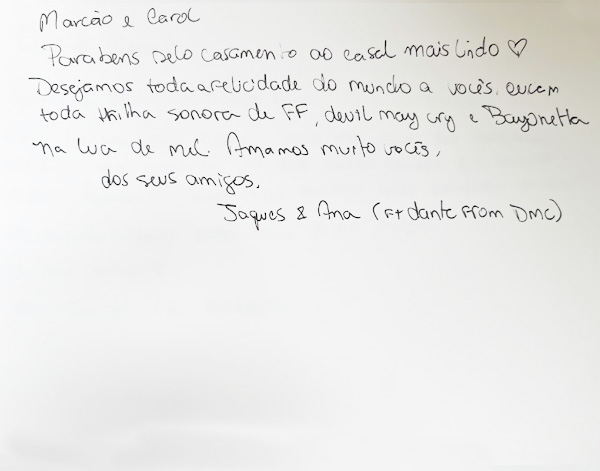 Marcão e Carol
Parabens pelo casamento ao casal mais lindo ♡
Desejamos toda a felicidade do mundo a vocês, oucam
toda trilha sonora de FF, devil may cry e Bayonetta
na lua de mel. Amamos muito vocês,
dos seus amigos,
Jaques & Ana (Ft dante from DMC)